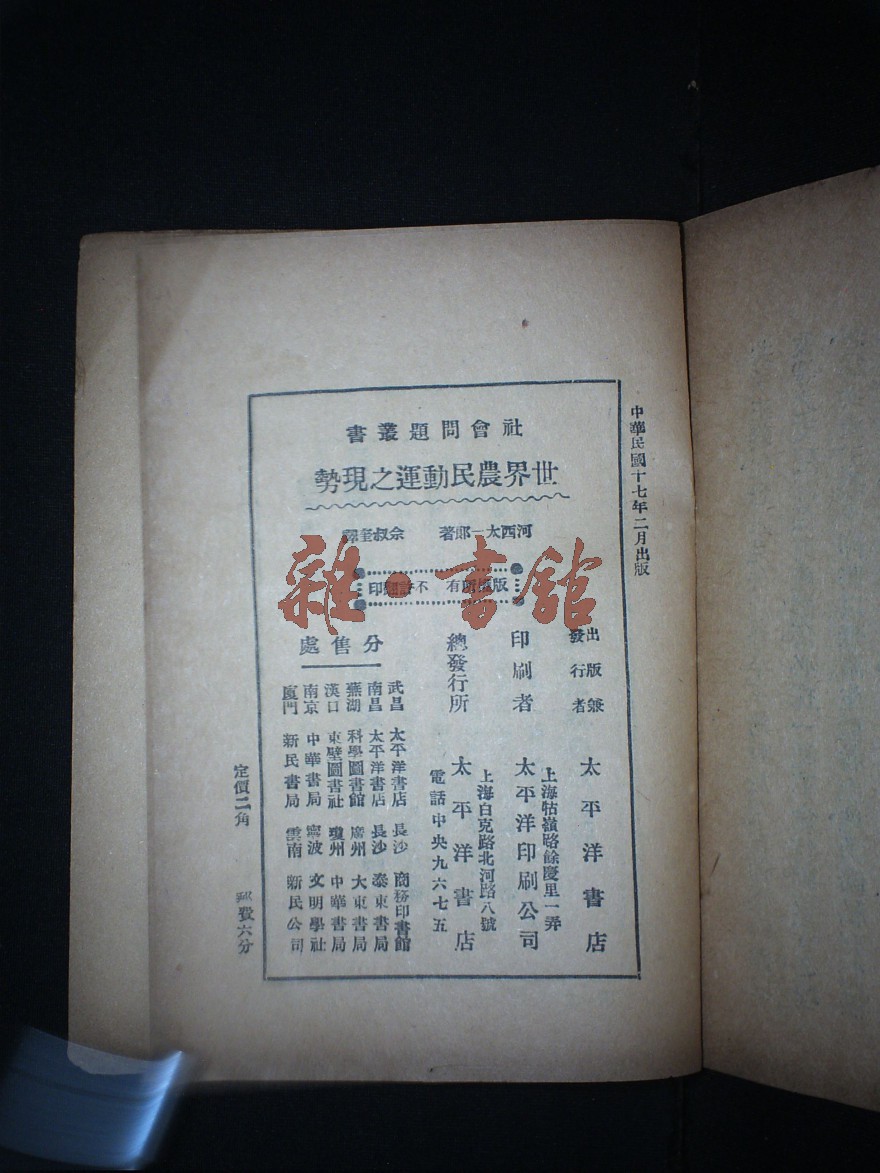 中華民國十七年二月出版
社會問題叢書
世界農民動運之現勢
河西太一郎著 余叔奎譯
版權所有 不許翻印
出版兼
發行者
太平洋書店
上海牯嶺路餘慶里一弄
印刷者
太平洋印刷公司
上海白克路北河路八號
總發行所
太平洋書店
電話中央九六七五
分售處
武昌 太平洋書店 長沙 商務印書館
南昌 太平洋書店 長沙 泰東書局
蕪湖 科學圖書館 廣州 大東書局
漢口 東壁圖書社 瓊州 中華書局
南京 中華書局 寧波 文明學社
廈門 新民書局 雲南 新民公司
定價二角 郵費六分
雜·書館